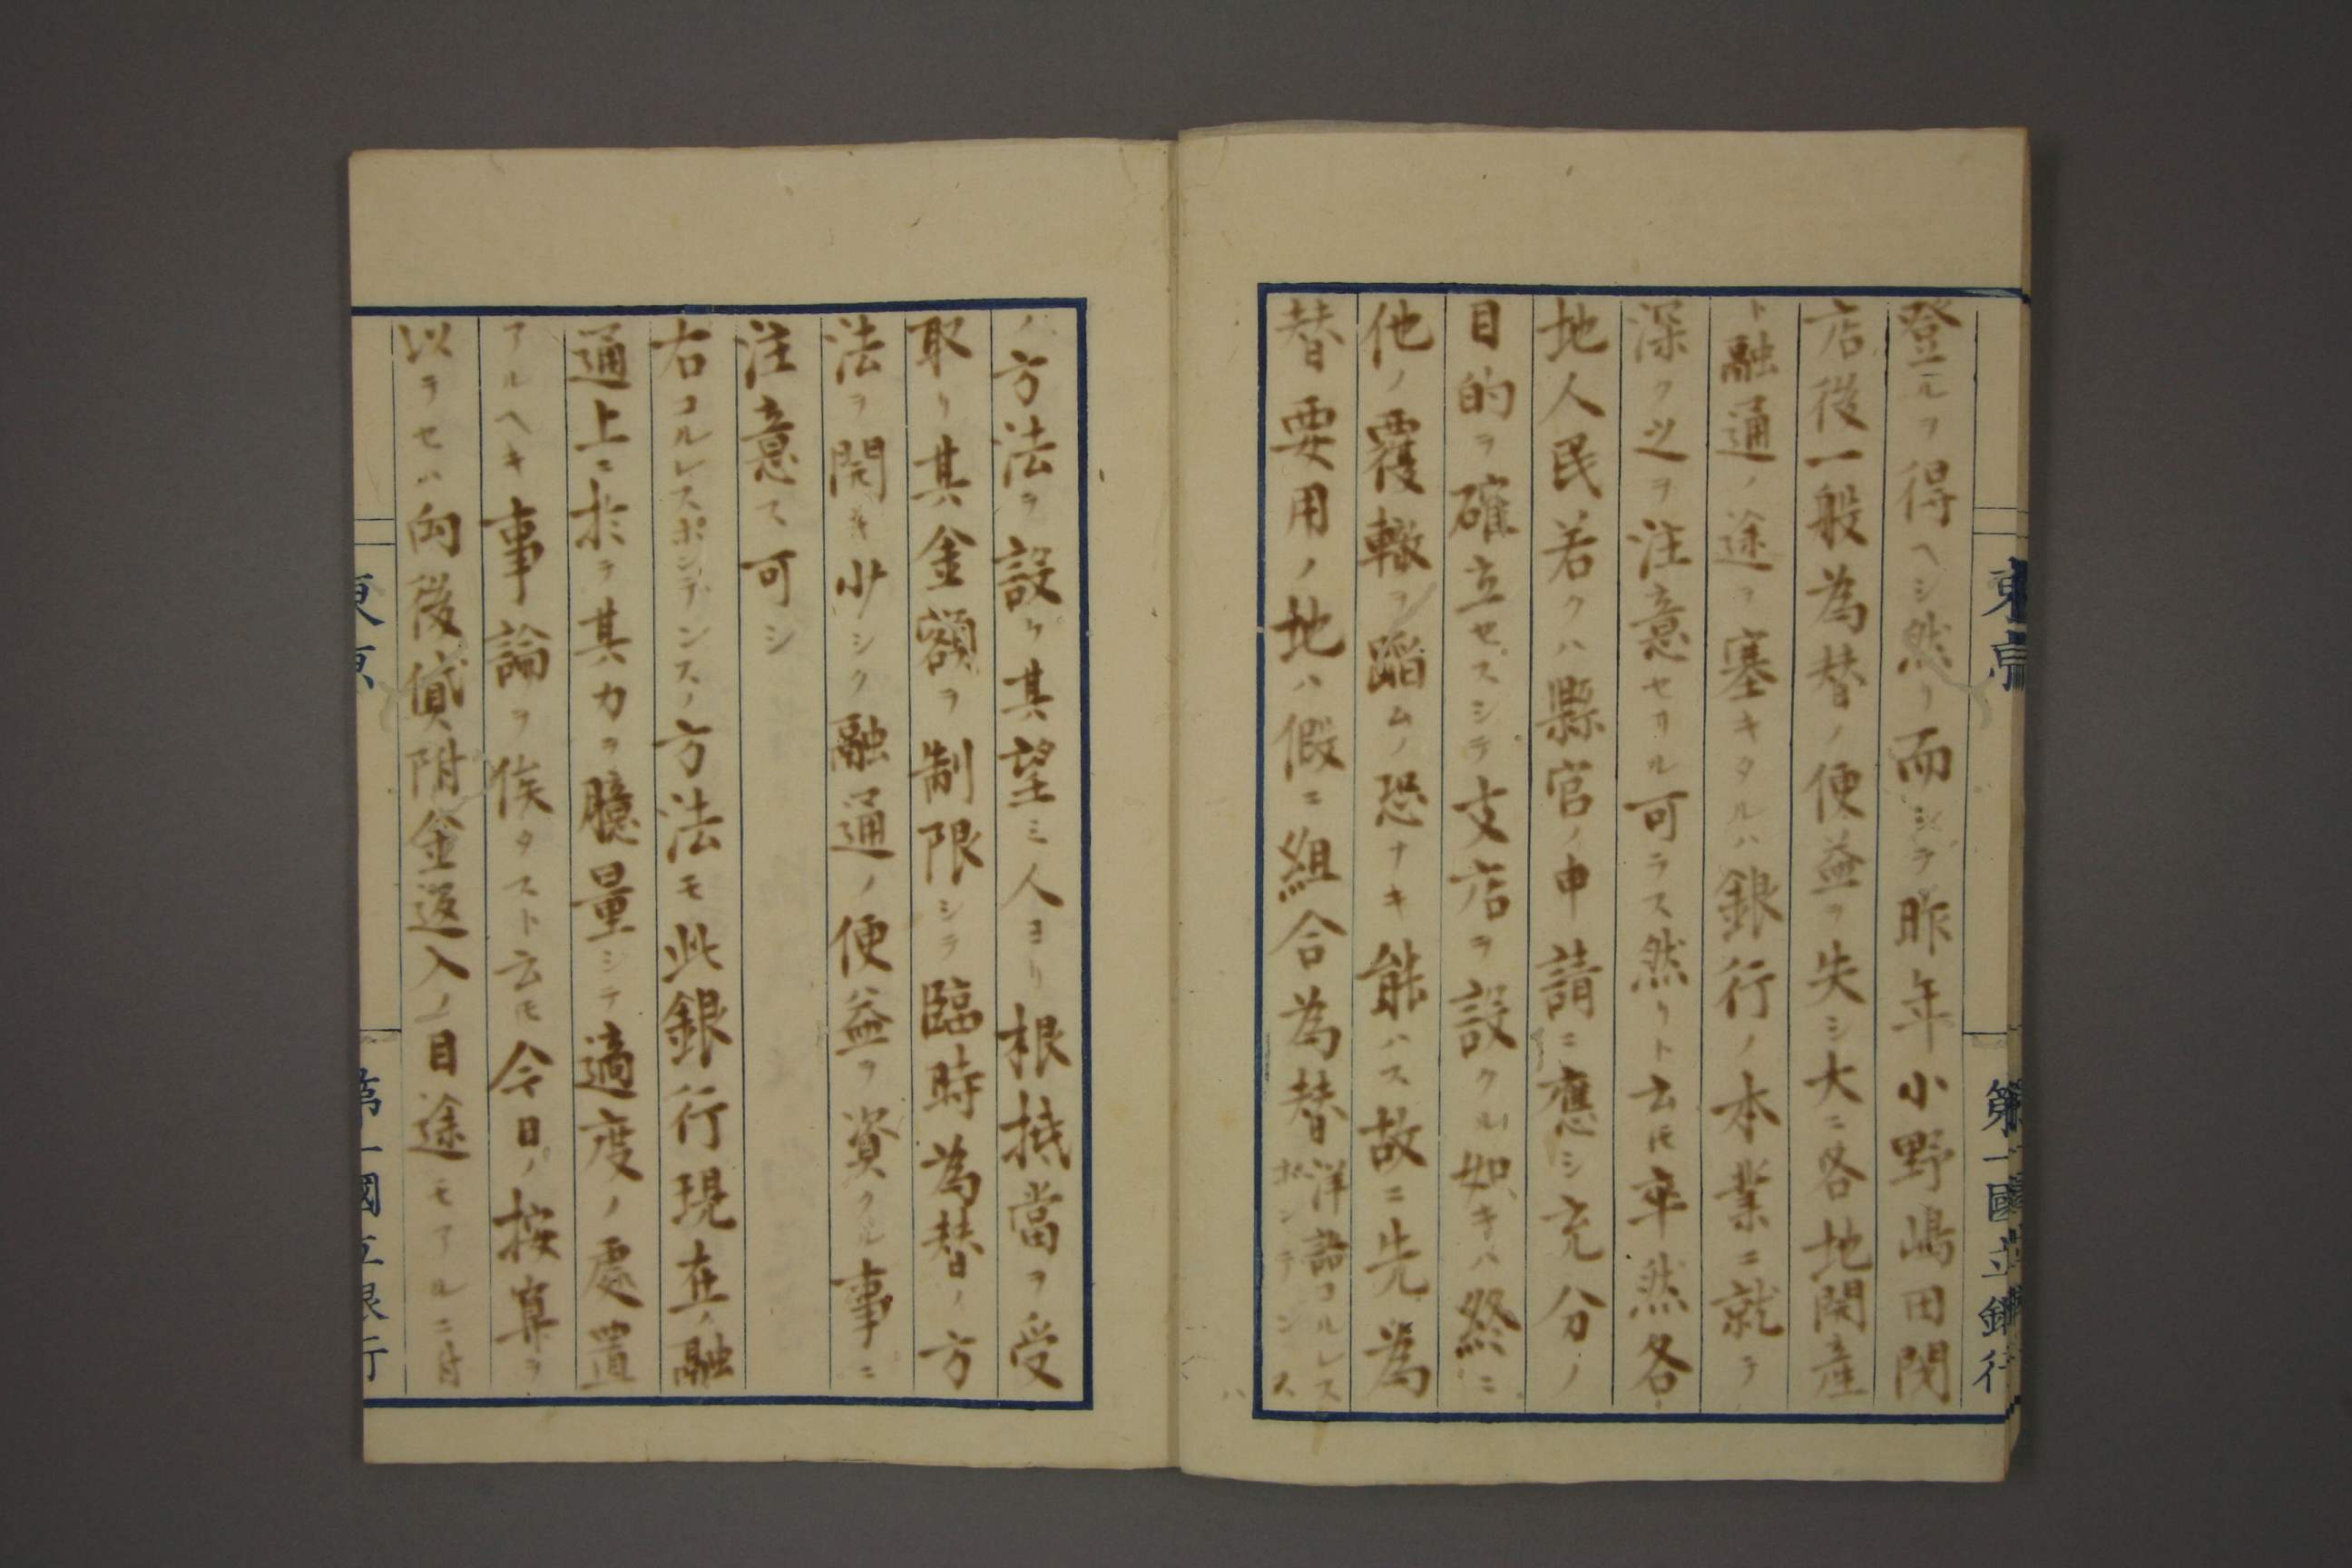 東京
第一國立銀行
登ルヲ得ヘシ然リ而シテ昨年小野嶋田閉
店後一般為替ノ便益ヲ失シ大ニ各地開産
ト融通ノ途ヲ塞キタルハ銀行ノ本業ニ就テ
深ク之ヲ注意セサル可ラス然リト云モ卒然各
地人民若クハ縣官ノ申請ニ應シ充分ノ
目的ヲ確立セスシテ支店ヲ設クル如キハ終ニ
他ノ覆轍ヲ蹈ムノ恐ナキ能ハス故ニ先為
替要用ノ地ハ假ニ組合為替洋語コルレス
ポンデンス
ハ
ノ方法ヲ設ケ其望ミ人ヨリ根抵當ヲ受
取リ其金額ヲ制限シテ臨時為替ノ方
法ヲ開キ少シク融通ノ便益ヲ資クル事ニ
注意ス可シ
右コルレスポンデンスノ方法モ此銀行現在ノ融
通上ニ於テ其力ヲ臆量シテ適度ノ處置
アルヘキ事論ヲ俟タスト云モ今日ノ按算ヲ
以テセハ向後貸附金返入ノ目途モアルニ付
東京
第一國立銀行